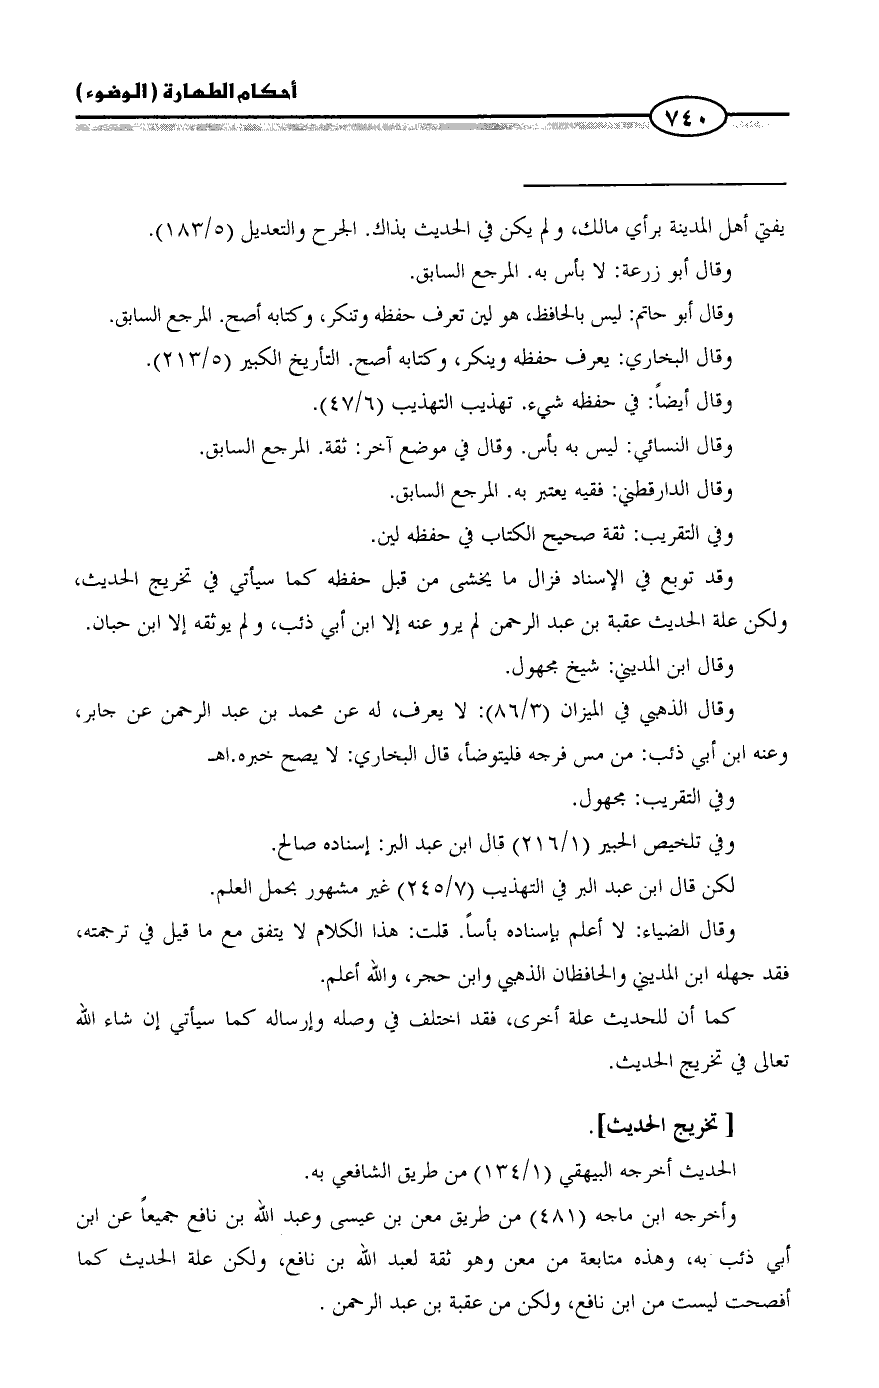 أحكام الطهارة (الوضوء)
٧٤٠
يفتي أهل المدينة برأي مالك، و لم يكن في الحديث بذاك. الجرح والتعديل (١٨٣/٥).
وقال أبو زرعة: لا بأس به. المرجع السابق.
وقال أبو حاتم: ليس بالحافظ، هو لين تعرف حفظه وتنكر، وكتابه أصح. المرجع السابق.
وقال البخاري: يعرف حفظه وينكر، وكتابه أصح. التأريخ الكبير (٢١٣/٥).
وقال أيضاً: في حفظه شيء. تهذيب التهذيب (٤٧/٦).
وقال النسائي: ليس به بأس. وقال في موضع آخر: ثقة. المرجع السابق.
وقال الدارقطني: فقيه يعتبر به. المرجع السابق.
وفي التقريب: ثقة صحيح الكتاب في حفظه لين.
وقد توبع في الإسناد فزال ما يخشى من قبل حفظه كما سيأتي في تخريج الحديث،
ولكن علة الحديث عقبة بن عبد الرحمن لم يرو عنه إلا ابن أبي ذئب، و لم يوثقه إلا ابن حبان.
وقال ابن المديني: شيخ مجهول.
وقال الذهبي في الميزان (٨٦/٣): لا يعرف، له عن محمد بن عبد الرحمن عن جابر،
وعنه ابن أبي ذئب: من مس فرجه فليتوضأ، قال البخاري: لا يصح خبره.اهـ
وفي التقريب: مجهول.
وفي تلخيص الحبير (٢١٦/١) قال ابن عبد البر: إسناده صالح.
لكن قال ابن عبد البر في التهذيب (٢٤٥/٧) غير مشهور بحمل العلم.
وقال الضياء: لا أعلم بإسناده بأساً. قلت: هذا الكلام لا يتفق مع ما قيل في ترجمته،
فقد جهله ابن المديني والحافظان الذهبي وابن حجر، والله أعلم.
كما أن للحديث علة أخرى، فقد اختلف في وصله وإرساله كما سيأتي إن شاء الله
تعالى في تخريج الحديث.
[ تخريج الحديث].
الحديث أخرجه البيهقي (١٣٤/١) من طريق الشافعي به.
وأخرجه ابن ماجه (٤٨١) من طريق معن بن عيسى وعبد الله بن نافع جميعاً عن ابن
أبي ذئب به، وهذه متابعة من معن وهو ثقة لعبد الله بن نافع، ولكن علة الحديث كما
أفصحت ليست من ابن نافع، ولكن من عقبة بن عبد الرحمن .